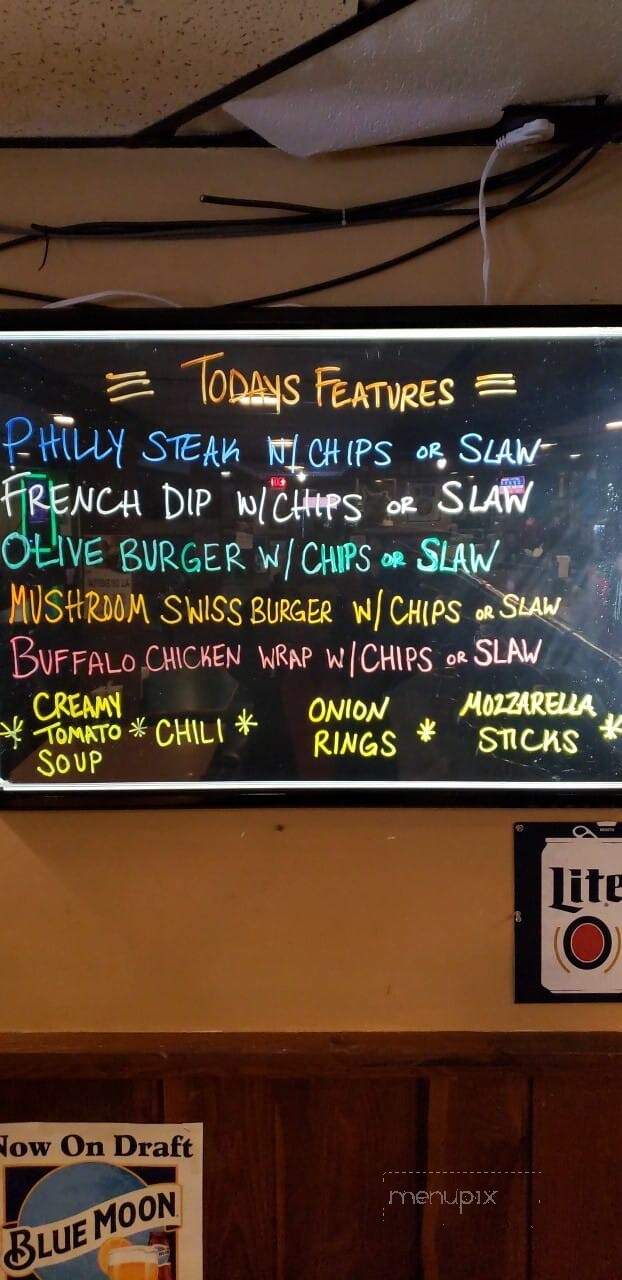 TODAYS FEATURES
PHILLY STEAK W/CHIPS OR SLAW
FRENCH DIP W/CHIPS OR SLAW
OLIVE BURGER W/CHIPS OR SLAW
MUSHROOM SWISS BURGER W/CHIPS OR SLAW
BUFFALO CHICKEN WRAP W/CHIPS OR SLAW
CREAMY
TOMATO
SOUP
CHILI
ONION
RINGS
MOZZARELLA
STICKS
Lite
Now On Draft
BLUE MOON
menupix